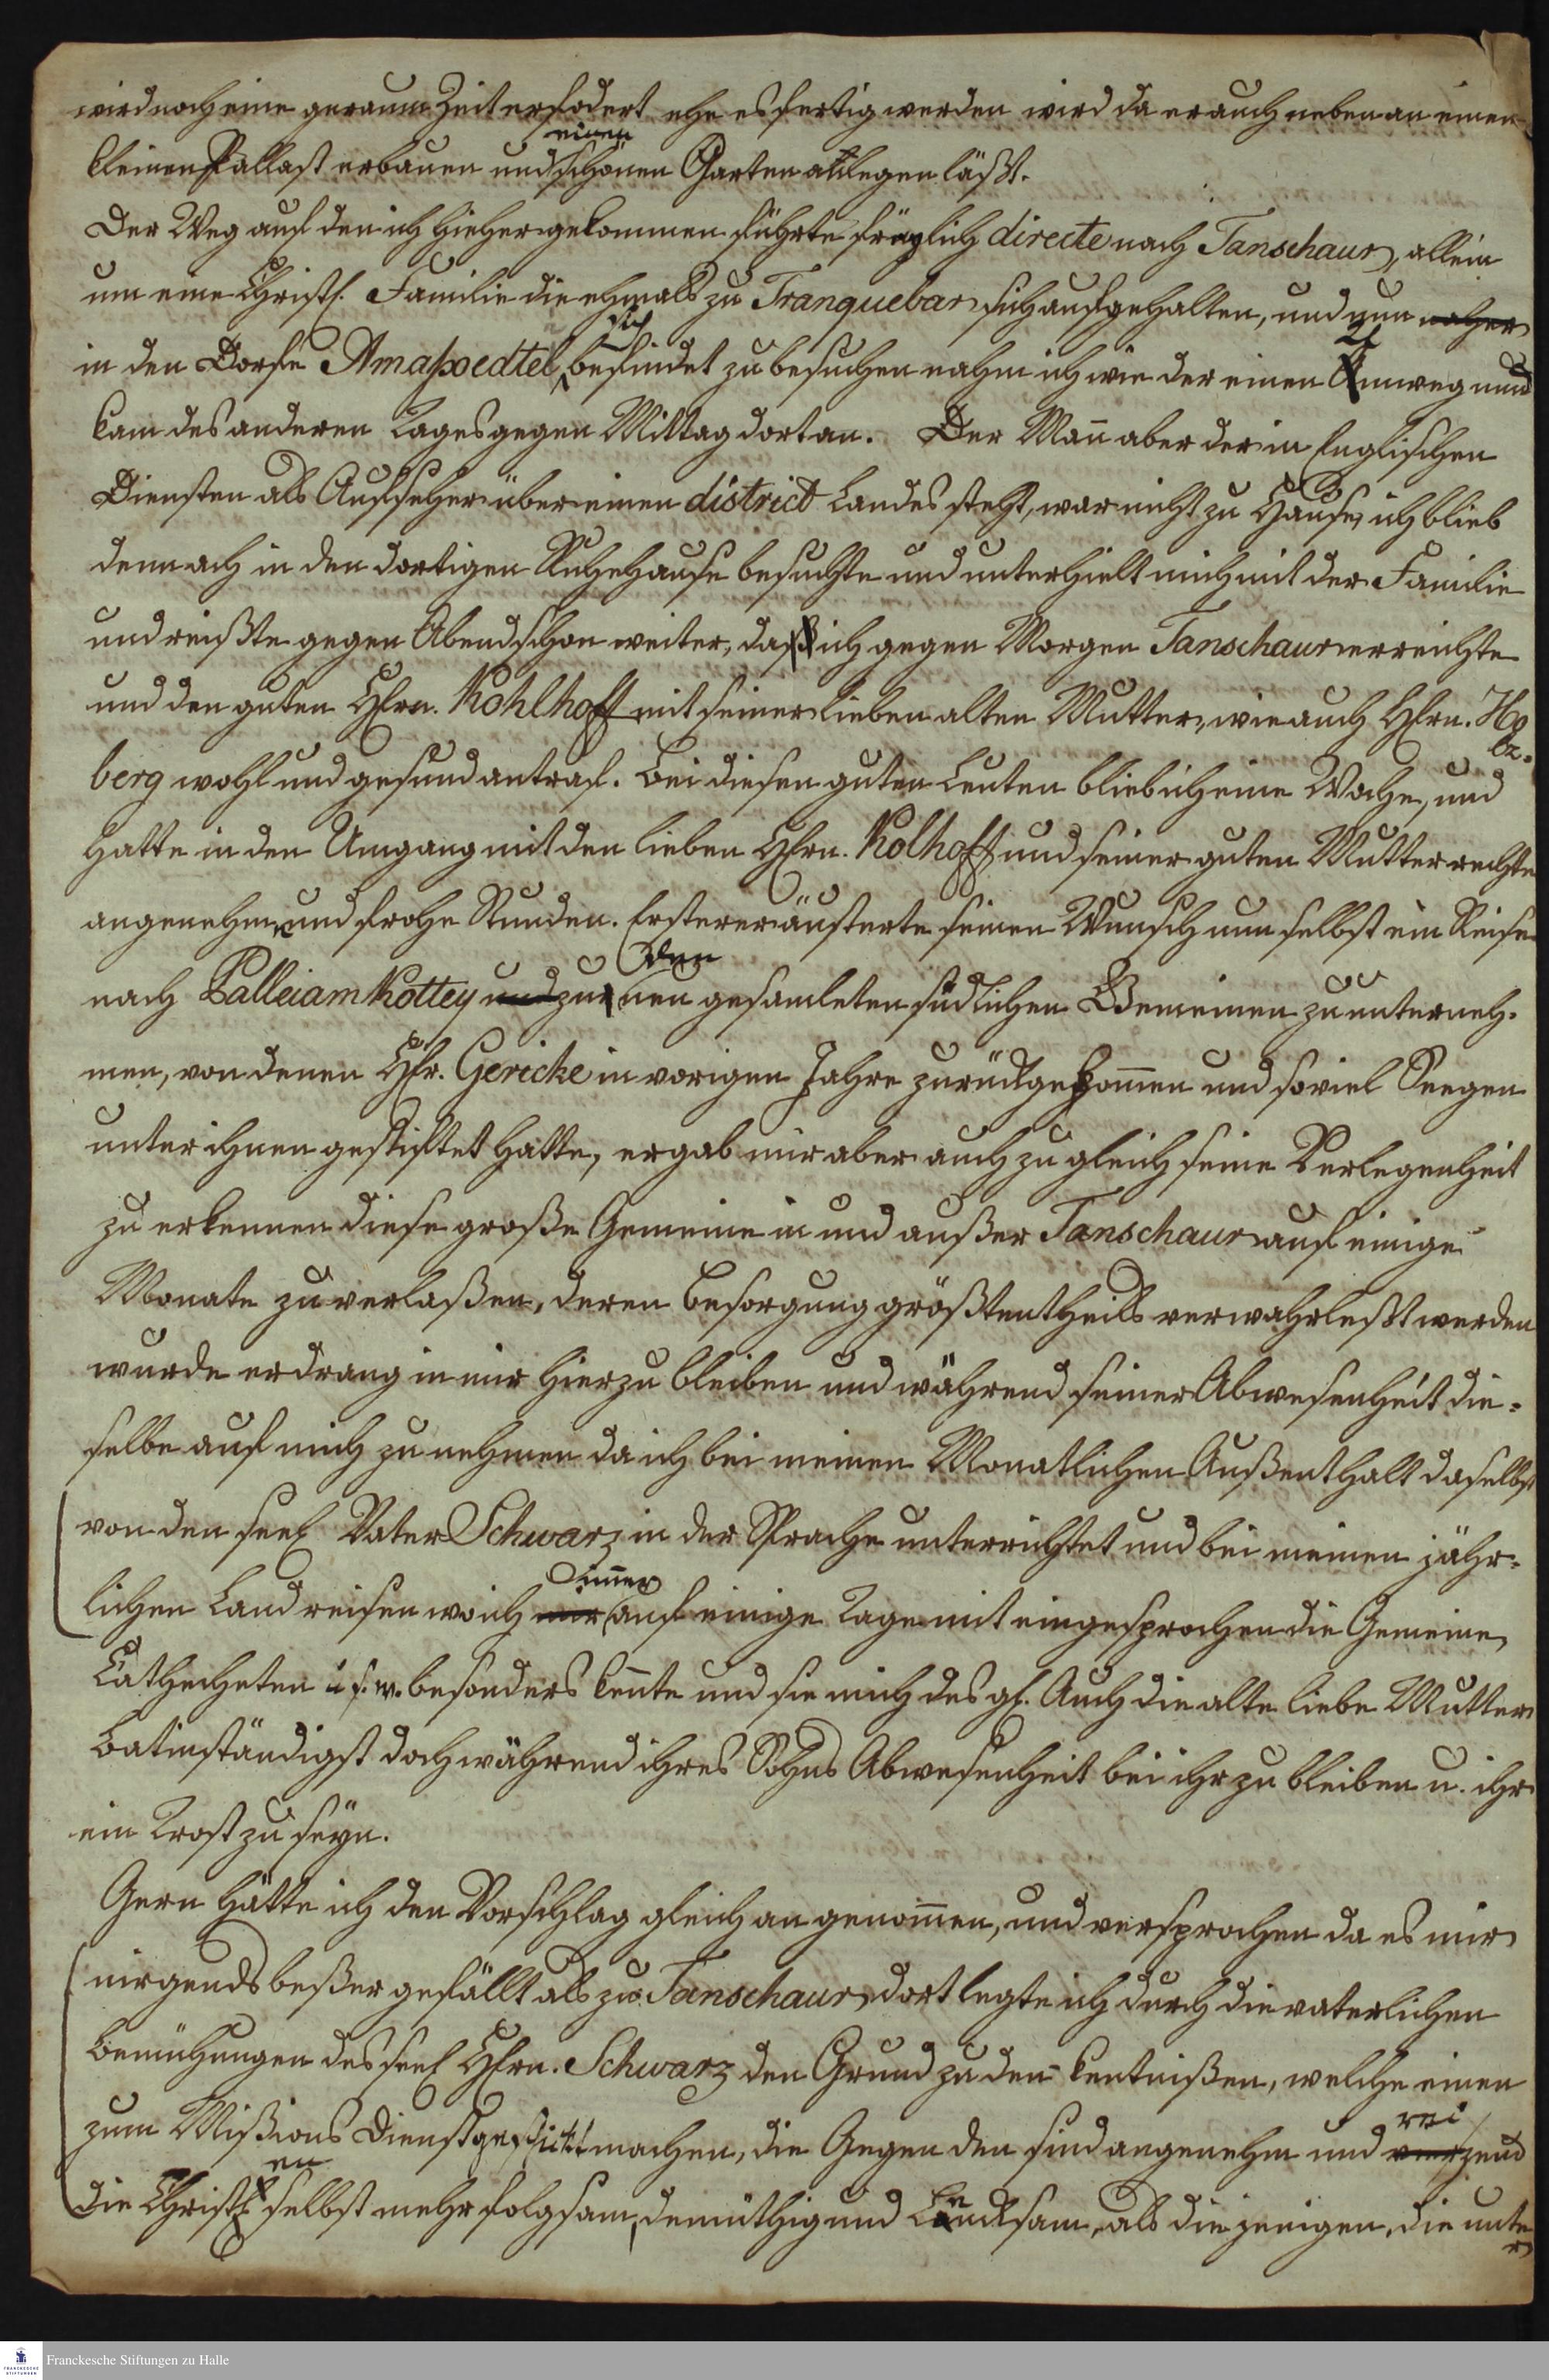 wird noch eine geraume Zeit erfodert ehe es fertig werden wird da er auch neben an einen
kleinen Pallast erbauen und einen schönen Garten anlegen läßt.
Der Weg auf den ich hieher gekommen führte freylich directe nach Tanschaur, allein
um eine Christl. Familie die ehmals zu Tranquebar sich aufgehalten, und nun naher
in den Dorfe Amapoedtel sich befindet zu besuchen nahm ich wie der einen Umweg und
kam des anderen Tages gegen Mittag dort an. Der Mañ aber der in Englischen
Diensten als Aufseher über einen district Landes steht, war nicht zu Hause, ich blieb
demnach in den dortigen Ruhehause besuchte und unterhielt mich mit der Familie
und reißte gegen Abend schon weiter, daß ich gegen Morgen Tanschaur erreichte
und den guten Hfrn. Kohlhoff mit seiner lieben alten Mutter, wie auch Hfrn. Holz-
berg wohl und gesund antraf. Bei diesen guten Leuten blieb ich eine Woche, und
hatte in den Umgang mit den lieben Hfrn. Kolhoff und seiner guten Mutter rechte
angenehme und frohe Stunden. Ersterer äusserte seinen Wunsch nun selbst ein Reise
nach Palleiamkottey und zu den neu gesamleten südlichen Gemeinen zu unterneh-
men, von denen Hfr. Gericke in vorigen Jahre zurückgekom̃en und soviel Seegen
unter ihnen gestiftet hatte, er gab mir aber auch zu gleich seine Verlegenheit
zu erkennen diese große Gemeine in und außer Tanschaur auf einige
Monate zu verlaßen, deren Besorgung größtentheils verwahrleßt werden
wurde er drang in mir hier zu bleiben und während seiner Abwesenheit die-
selbe auf mich zu nehmen da ich bei meinen Monatlichen Außenthalt daselbst
von den seel Vater Schwarz in der Sprache unterrichtet und bei meinen jähr-
lichen Land reisen wo ich mir im̃er auf einige Tage mit eingesprochen die Gemeine,
Cathecheten u. s. w. besonders keñte und sie mich des gl. Auch die alte liebe Mutter
bat inständigst doch während ihres Sohns Abwesenheit bei ihr zu bleiben u. ihr
ein Trost zu seyn.
Gern hätte ich den Vorschlag gleich an genom̃en, und versprochen da es mir
nirgends beßer gefällt als zu Tanschaur, dort legte ich durch die vaterlichen
Bemühungen des seel Hfrn. Schwarz den Grund zu den kentnißen, welche einen
zum Mißions Dienst geschickt machen, die Gegenden sind angenehm und reizend
die Christen selbst mehr folgsam, demüthig und lencksam, als die jenigen, die unter
Franckesche Stiftungen zu Halle